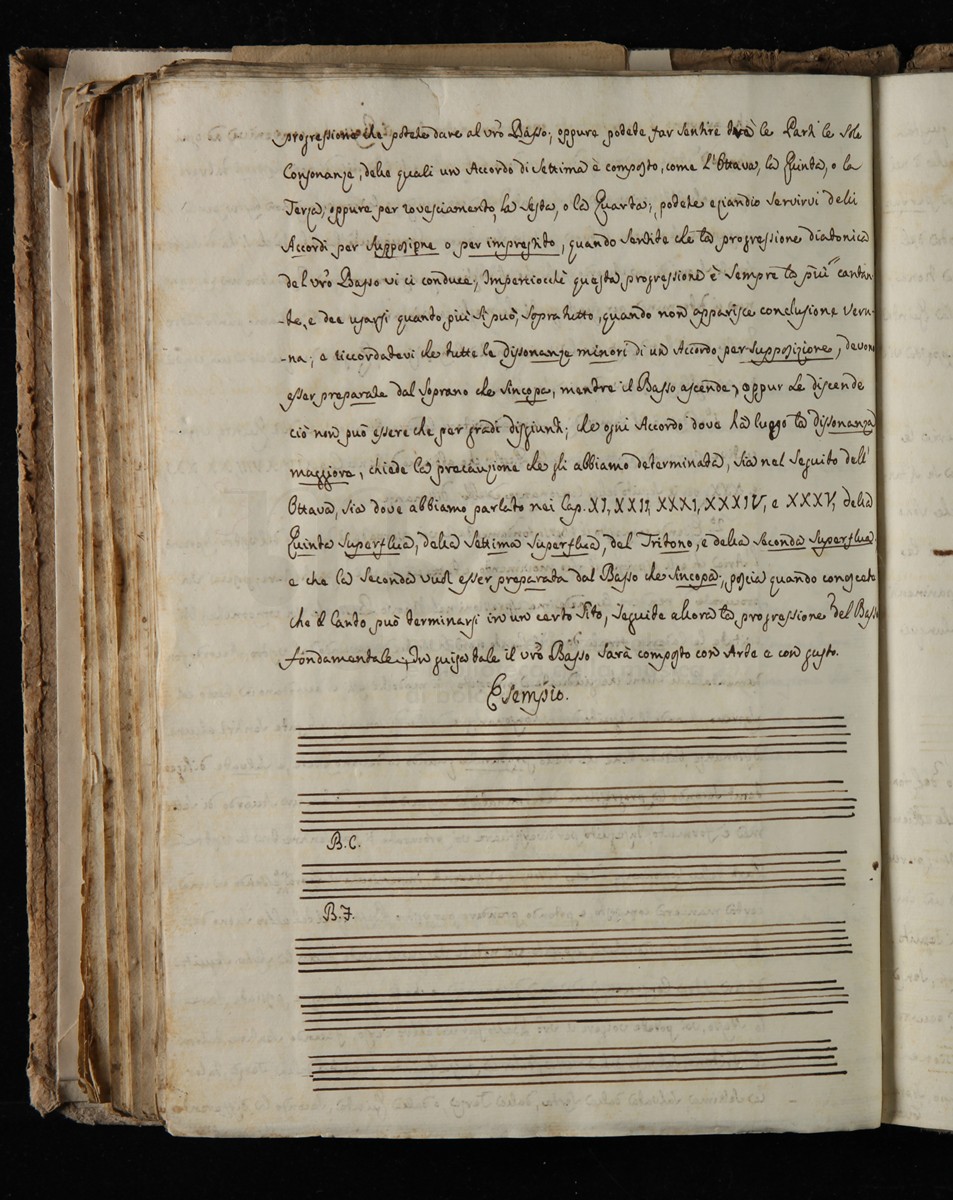 progressione che potete dare al vr̃o Basso; oppure potete far sentire tre le Parti le sole
Consonanze, delle quali un Accordo di Settima è composto, come l'Ottava, la Quinta, o la
Terza; oppure per rovesciamento, la Sesta, o la Quarta; potete eziandio servirvi delli
Accordi per supposizne o per imprestito, quando sentite che la progressione diatonica
del vr̃o Basso vi ci conduce; Imperciocchè questa progressione è sempre la più cantan-
-te, e dee usarsi quanto più si può, sopra tutto, quando non apparisce conclusione veru-
-na; e riccordatevi che tutte le dissonanze minori di un Accordo per supposizione, devono
esser preparate dal Soprano che sincopa, mentre il Basso ascende, oppur se discende
ciò non può essere che per gradi disgiunti; che ogni Accordo dove hà luogo la dissonanza
maggiore, chiede la precauzione che gli abbiamo determinata, sia nel seguito dell'
Ottava, sia dove abbiamo parlato nei Cap. XI, XXII, XXXI, XXXIV, e XXXV, della
Quinta Superflua, della Settima Superflua, del Tritono, e della Seconda Superflua;
e che la Seconda vuol esser preparata dal Basso che sincopa; poscia quando conoscete
che il Canto può terminarsi in un certo sito, seguite allora la progressione del Basso
fondamentale; In guisa tale il vr̃o Basso sarà composto con Arte e con gusto.
Esempio.
B.C.
B.F.